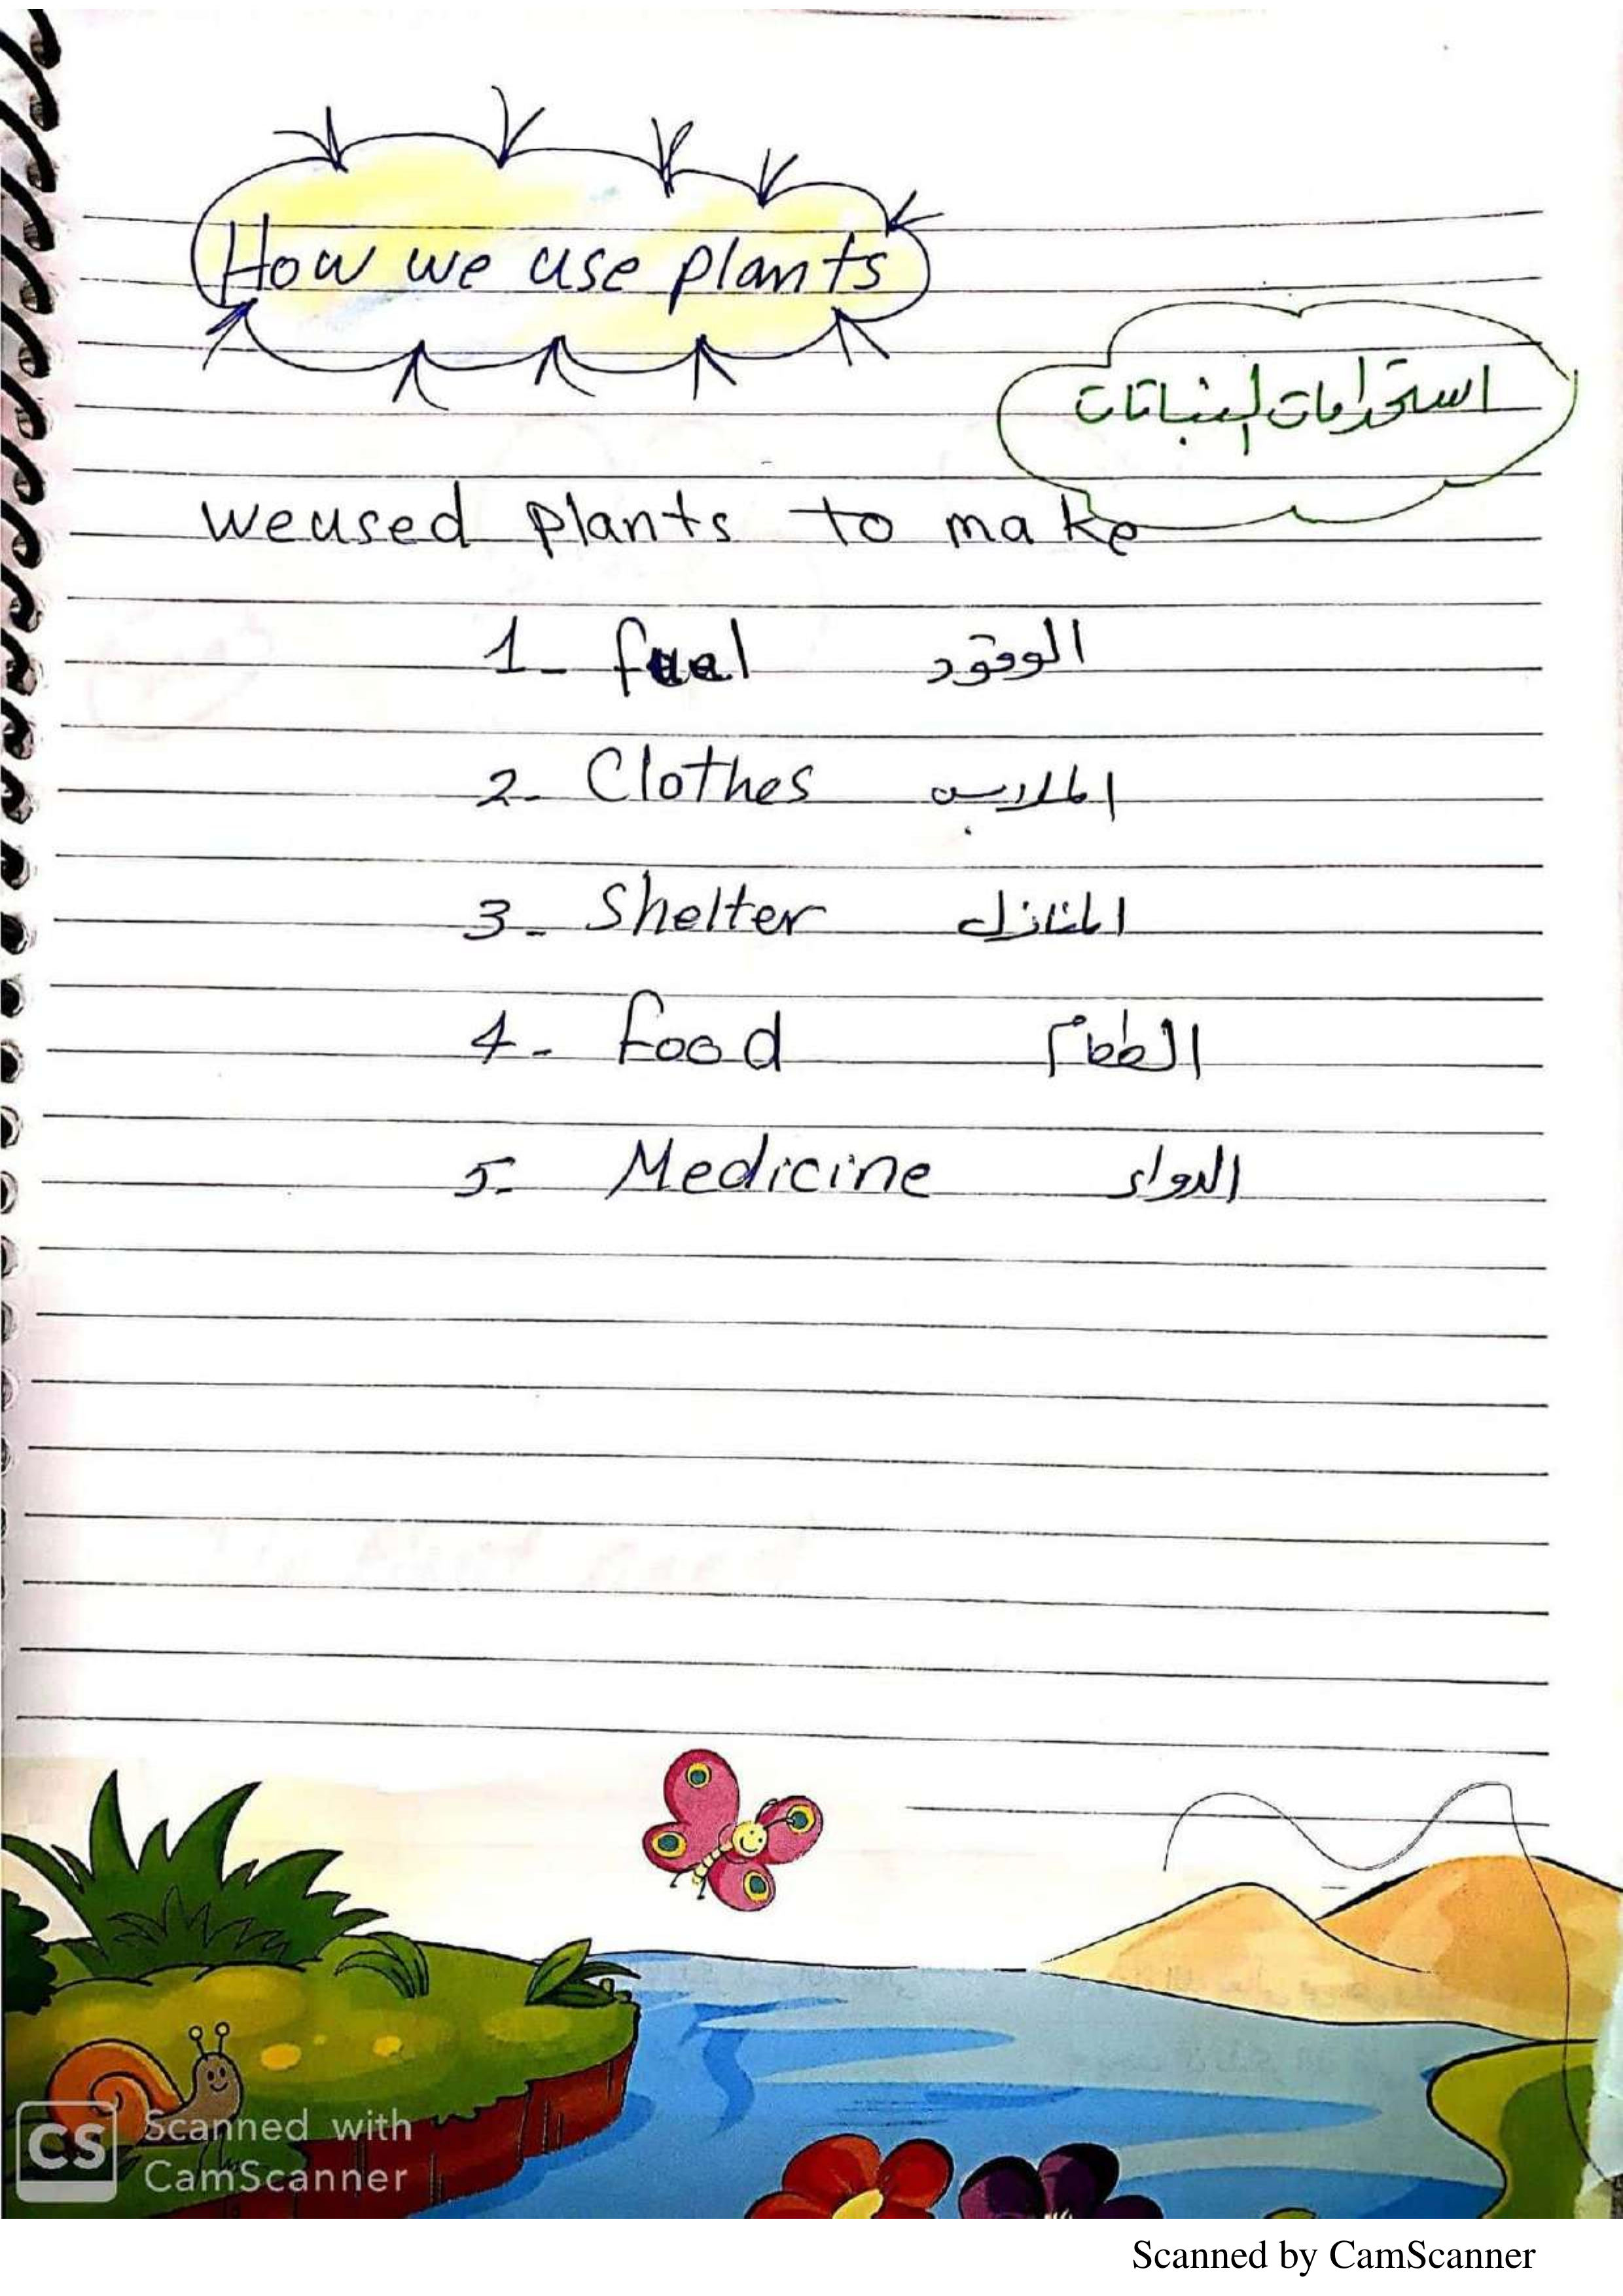 How we use plants
استخدامات النباتات
we used plants to make
1- fuel الوقود
2- Clothes الملابس
3- Shelter المنازل
4- food الطعام
5- Medicine الدواء
CS Scanned with
CamScanner
Scanned by CamScanner